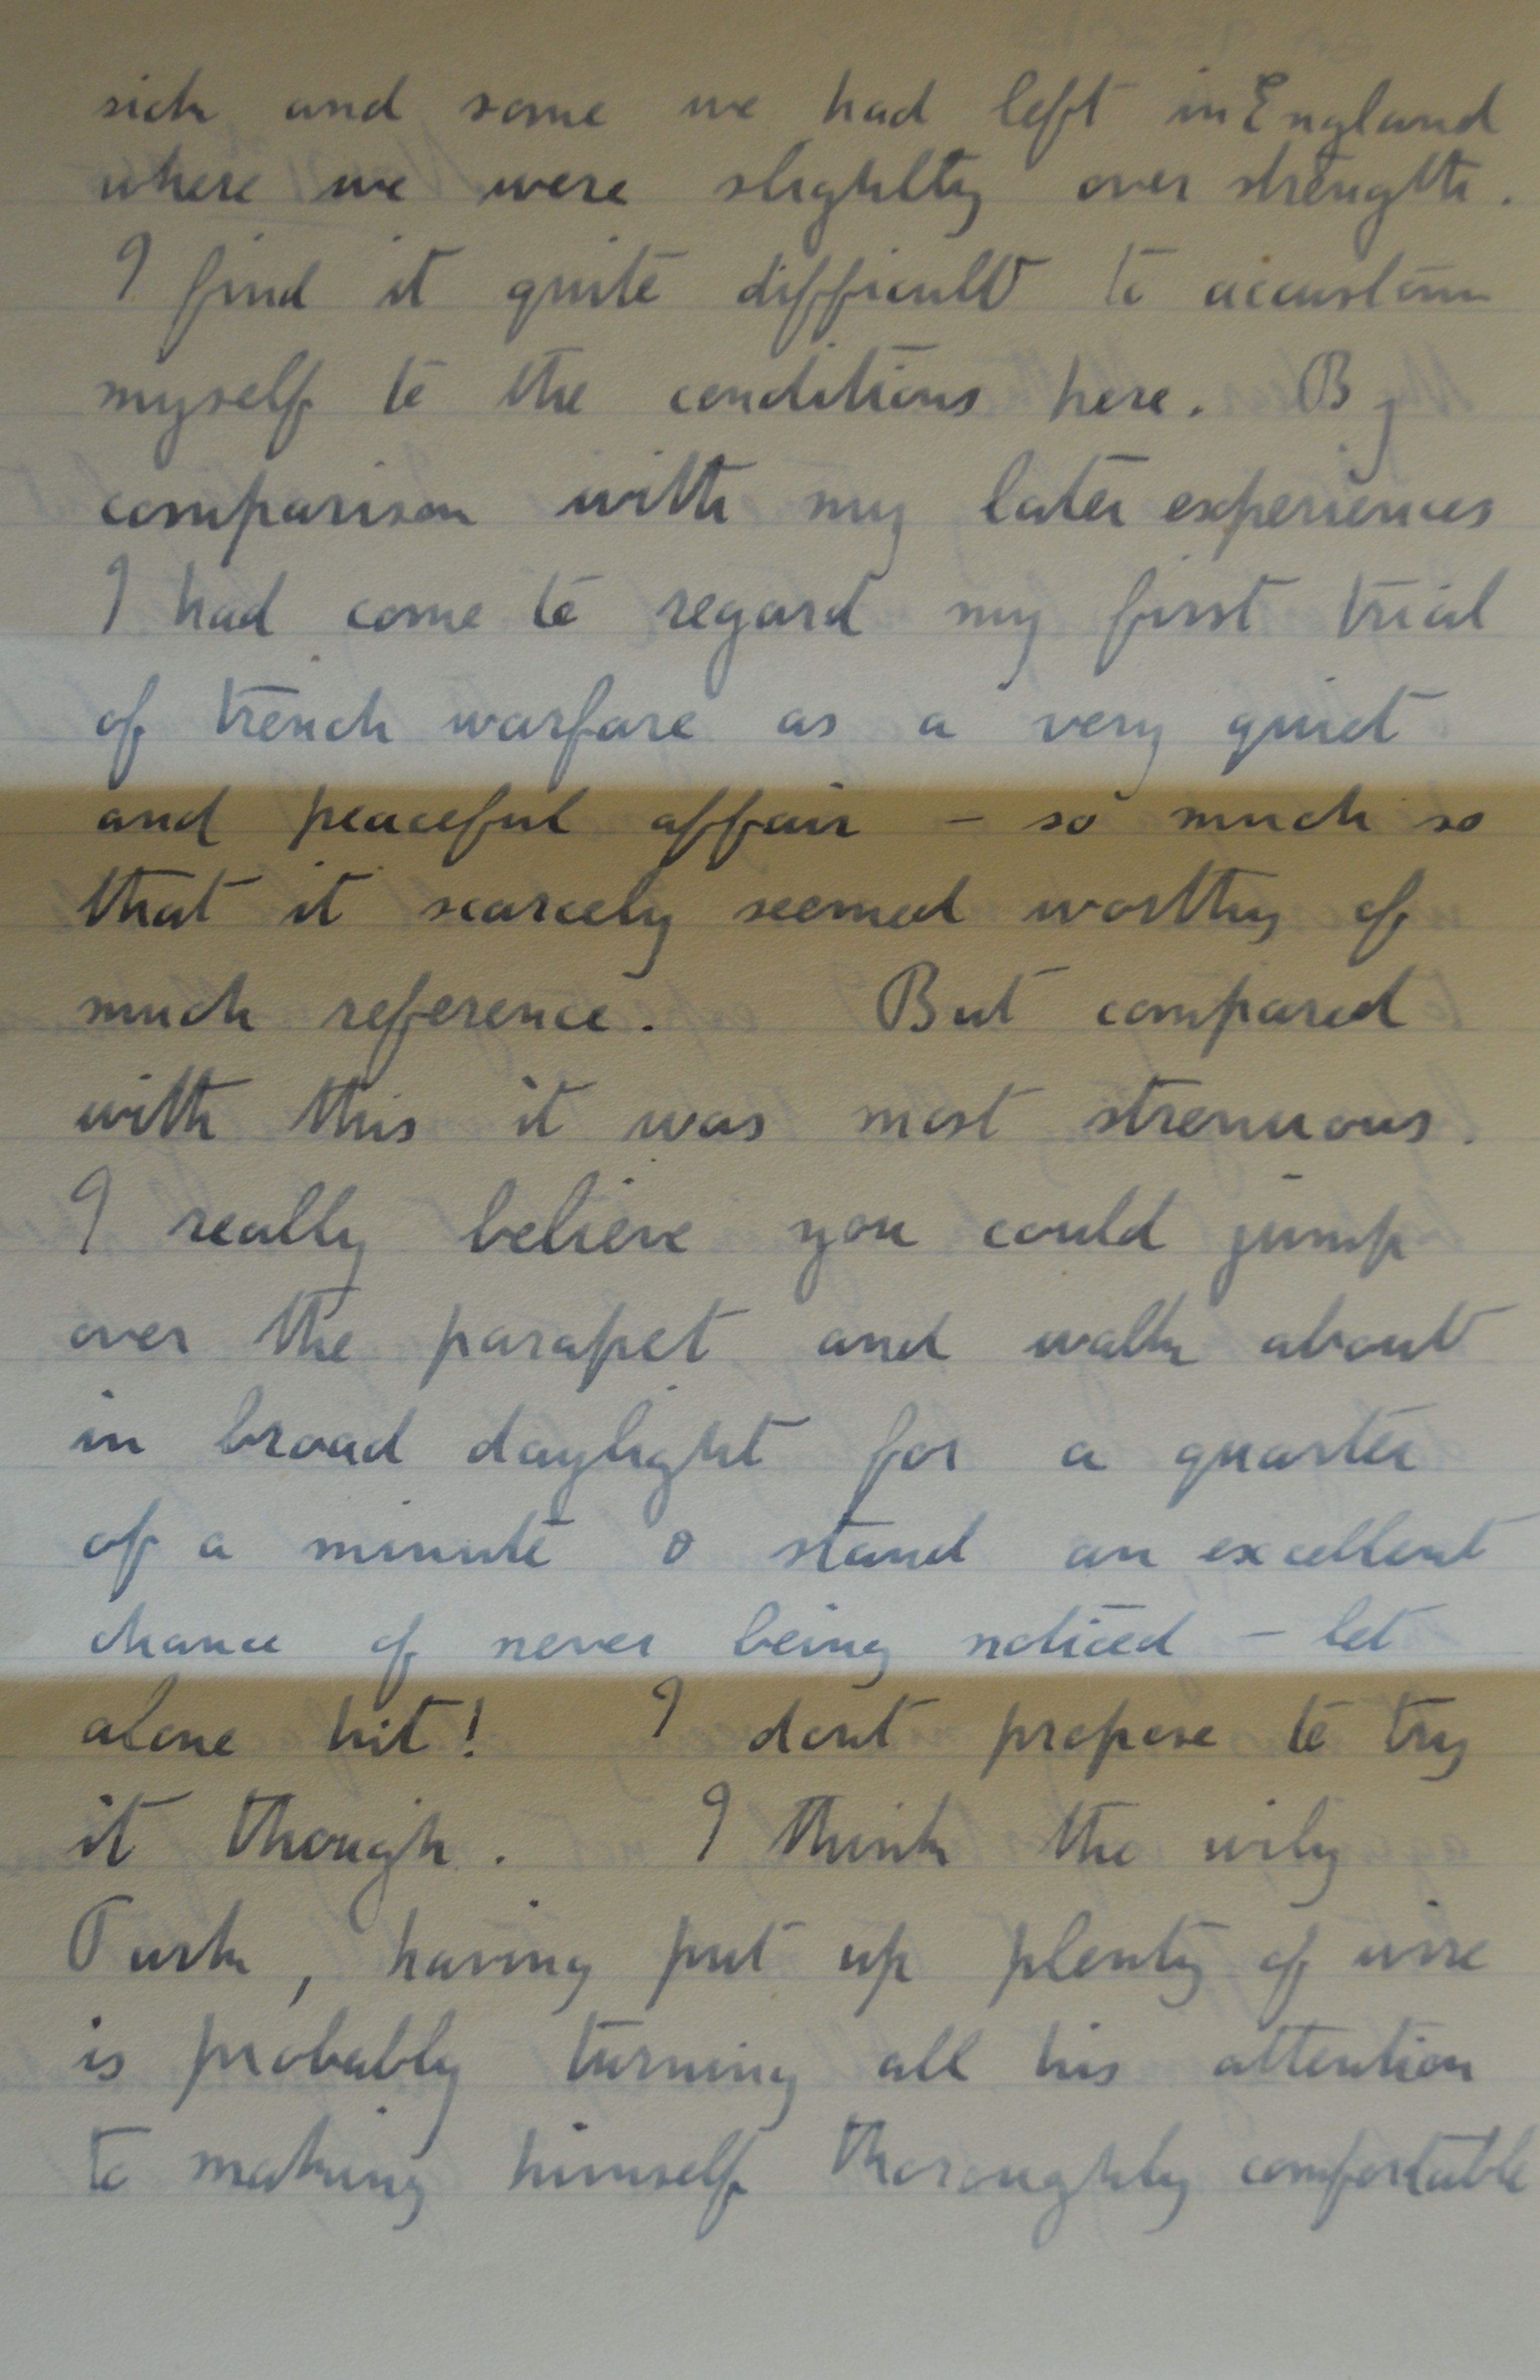 sick and some we had left in England
where we were slightly over strength.
I find it quite difficult to accustom
myself to the conditions here. By
comparison with my later experiences
I had come to regard my first trial
of trench warfare as a very quiet
and peaceful affair – so much so
that it scarcely seemed worthy of
much reference. But compared
with this it was most strenuous.
I really believe you could jump
over the parapet and walk about
in broad daylight for a quarter
of a minute & stand an excellent
chance of never being noticed – let
alone hit! I dont propose to try
it though. I think the wily
Turk, having put up plenty of wire
is probably turning all his attention
to making himself thoroughly comfortable